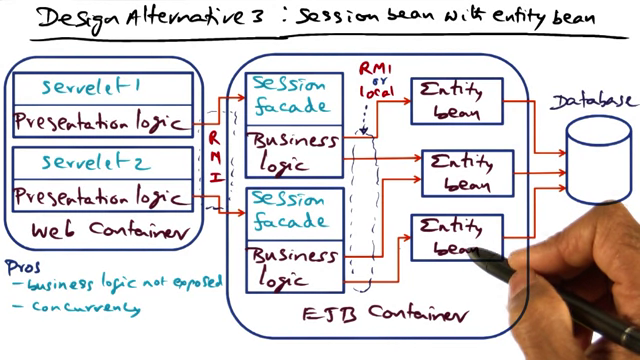 Design Alternative 3 : Session bean with entity bean
servelet 1
Presentation logic
servelet 2
Presentation logic
Web Container
RMI
Session
facade
Business
logic
Session
facade
Business
logic
RMI
or
local
Entity
bean
Entity
bean
Entity
bean
EJB Container
Database
Pros
- business logic not exposed
- concurrency